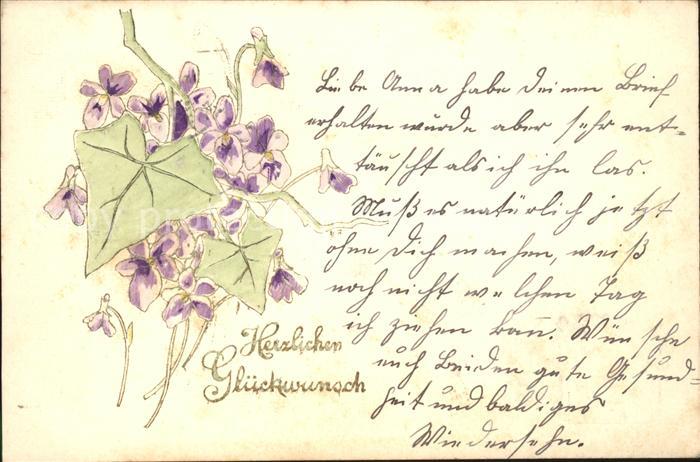 Liebe Anna habe deinen Brief
erhalten wurde aber sehr ent=
täuscht als ich ihn las.
Muß es natürlich jetzt
ohne Dich machen, weiß
noch nicht welchen Tag
ich ziehen kann. Wünsche
euch beiden gute Gesund=
heit und baldiges
Wiedersehn.
Herzlichen
Glückwunsch